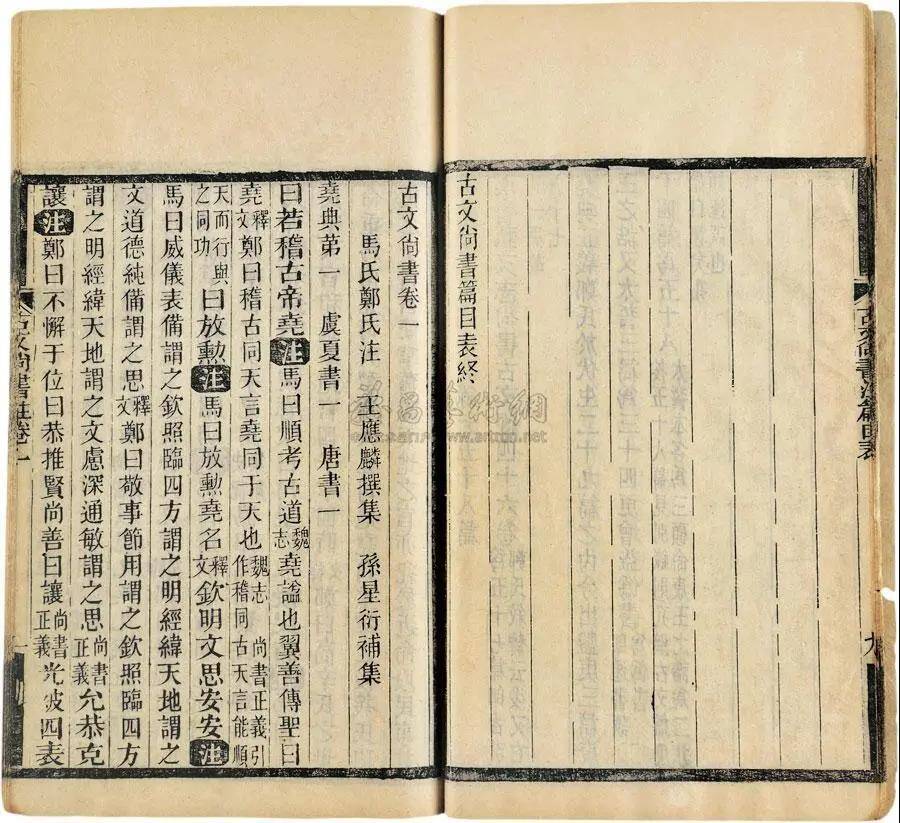 古文尚書篇目表終
九
古文尚書卷一
馬氏鄭氏注 王應麟撰集 孫星衍補集
堯典第一 虞夏書一 唐書一
曰若稽古帝堯注馬曰順考古道魏志堯諡也翼善傳聖曰
堯釋文鄭曰稽古同天言堯同于天也魏志作稽同古天言能順尚書正義引
天而行與之同功曰放勳注馬曰放勳堯名釋文欽明文思安安注
馬曰威儀表備謂之欽照臨四方謂之明經緯天地謂之
文道德純備謂之思釋文鄭曰敬事節用謂之欽照臨四方
謂之明經緯天地謂之文慮深通敏謂之思尚書正義允恭克
讓注鄭曰不懈于位曰恭推賢尚善曰讓尚書正義光被四表
古文尚書注卷一
一